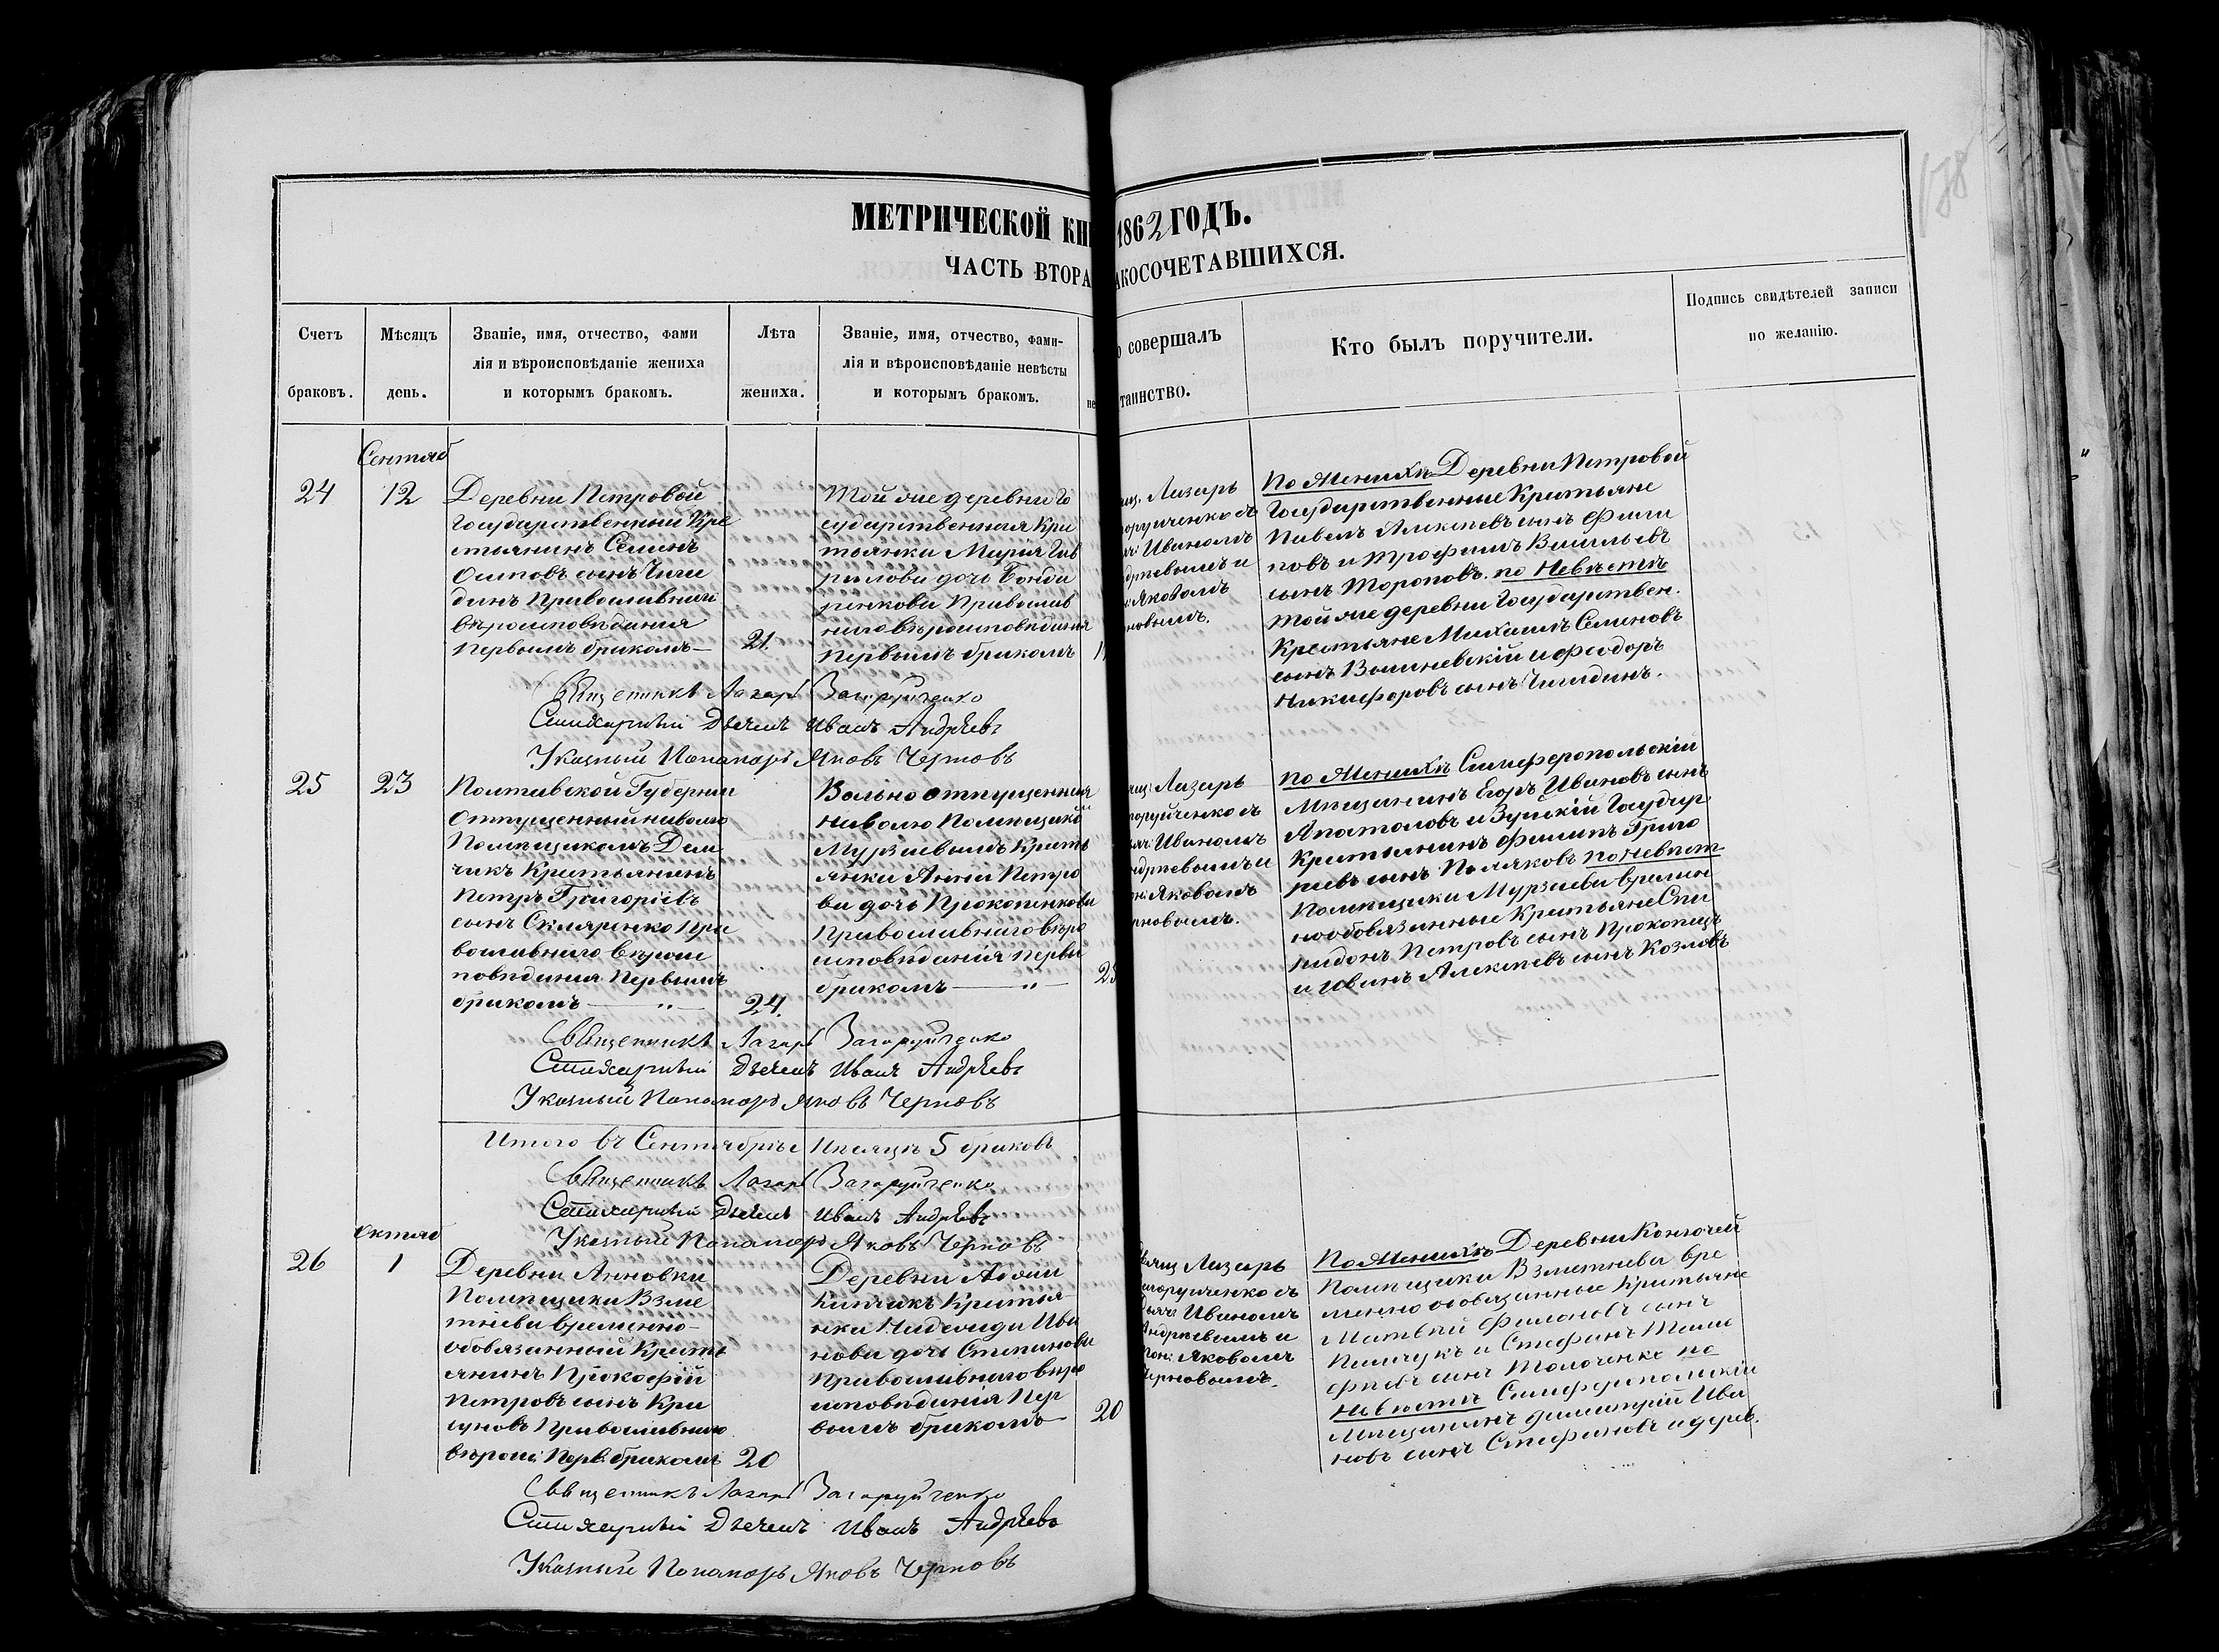 188
МЕТРИЧЕСКОЙ КНИ 1862 ГОДЪ.
ЧАСТЬ ВТОРА АКОСОЧЕТАВШИХСЯ.
Счетъ
браковъ.
Мѣсяцъ
день.
Званіе, имя, отчество, фами
лія и вѣроисповѣданіе жениха
и которымъ бракомъ.
Лѣта
жениха.
Званіе, имя, отчество, фами-
лія и вѣроисповѣданіе невѣсты
и которымъ бракомъ.
не
о совершалъ
таинство.
Кто былъ поручители.
Подпись свидѣтелей записи
по желанію.
Сентяб
24
12
Деревни Петровой
Государственный Кре
стьянинъ Семенъ
Осиповъ сынъ Чиги
динъ Православнаго
Вѣроисповѣданія
Первымъ бракомъ
21.
Той же деревни Го
сударственная Кре
стьянка Марія Гав
рилова дочь Бонда
ренкова Православ
наго Вѣроисповѣданія
Первымъ бракомъ
свящ. Лазарь
Загоруйченко съ
Иваномъ
Андреевымъ и
Яковомъ
новымъ.
По Женихѣ Деревни Петровой
Государственные Крестьяне
Павелъ Алексѣевъ сынъ Фили
повъ и Трофимъ Васильевъ
сынъ Тороповъ. по Невѣстѣ
той же деревни Государствен.
Крестьяне Михаилъ Семеновъ
сынъ Вишневскій и Феодоръ
Никифоровъ сынъ Чигидинъ.
Священникъ Лазарь Загоруйченко
Стихарный Дьячекъ Иванъ Андрѣевъ
Указный Понамарь Яковъ Черновъ
25
23
Полтавской Губерніи
Отпущенный на волю
Помѣщикомъ Дем
чикъ Крестьянинъ
Петръ Григоріевъ
сынъ Скляренко Пра
вославнаго Вѣроис
повѣданія Первымъ
бракомъ — " —
24.
Вольноотпущенная
На волю Помѣщикой
Мурзаевымъ Кресть
янка Анна Петро
ва дочь Прокопенкова
Православнаго вѣро
исповѣданія первы
бракомъ — " —
25
Лазарь
Загоруйченко съ
Иваномъ
Андреевымъ и
Яковомъ
Черновымъ.
По Женихѣ Симферопольскій
Мѣщанинъ Егоръ Ивановъ сынъ
Апостоловъ и Зуйскій Государ.
Крестьянинъ Филипъ Григо
ріевъ сынъ Поляковъ по Невѣст
Помѣщика Мурзаева времен
нообовязанные Крестьяне Спи
ридонъ Петровъ сынъ Прокопецъ
и Иванъ Алексѣевъ сынъ Козловъ
Священникъ Лазарь Загоруйченко
Стихарный Дьячекъ Иванъ Андрѣевъ
Указный Понамарь Яковъ Черновъ
Итого въ Сентябрѣ Мѣсяцѣ 5 браковъ
Священникъ Лазарь Загоруйченко
Стихарный Дьячекъ Иванъ Андрѣевъ
Указный Понамарь Яковъ Черновъ
Октяб
26
1
Деревни Анновки
Помѣщика Взме
тнева временно-
обовязанный Кресть
янинъ Прокофій
Петровъ сынъ Кри
цуновъ Православнаго
вѣроис: Перв: бракомъ
20
Деревни Абдіи
Кипчикъ Крестья-
нка Надежда Ива
нова дочь Степанова
Православнаго вѣро
исповѣданія Пер
вымъ бракомъ
20
Свящ Лазарь
Загоруйченко съ
Дьяч: Иваномъ
Андреевымъ и
Пон: Яковомъ
Черновымъ.
По Женихѣ Деревни Конгочей
Помѣщика Взметнева вре
менно обовязанные Крестьяне
Матвей Филоновъ сынъ
Пимчукъ и Стефанъ Тимо
феевъ сынъ Толоченко по
Невѣстѣ Симферопольскій
Мѣщанинъ Димитрій Ива
новъ сынъ Стефановъ и дерев.
Священникъ Лазарь Загоруйченко
Стихарный Дьячекъ Иванъ Андрѣевъ
Указный Понамарь Яковъ Черновъ